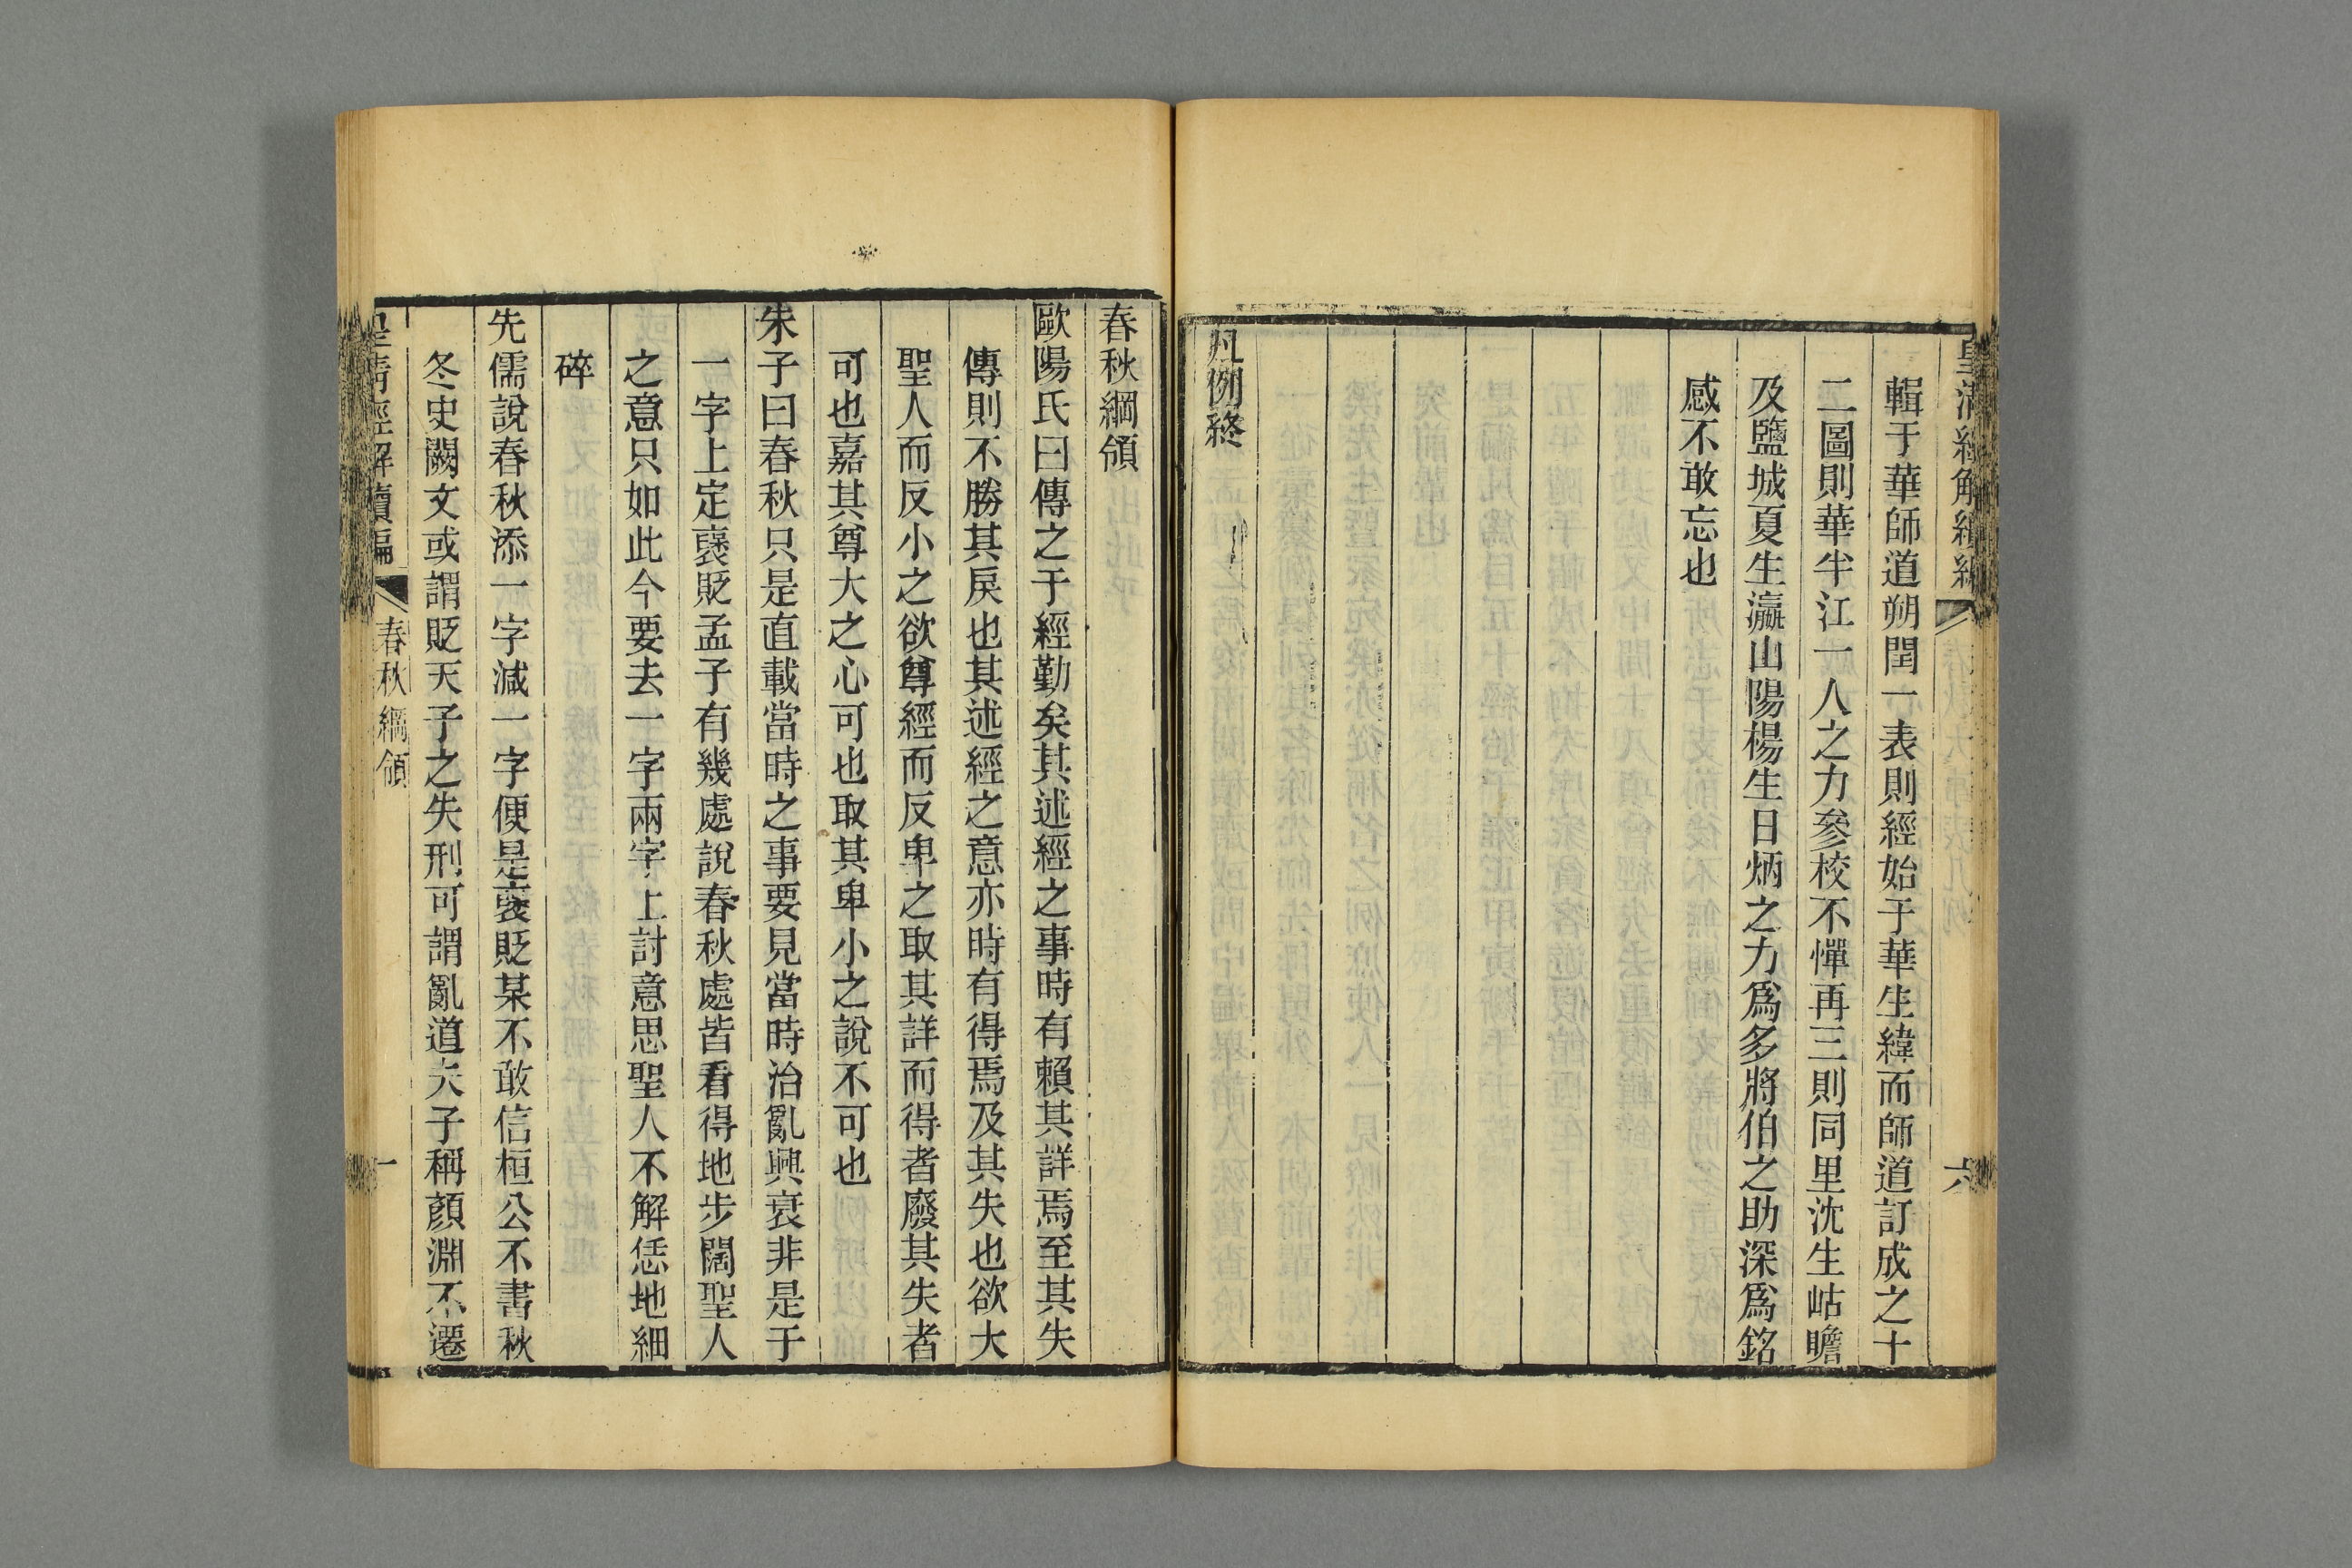 皇清經解續編
六
輯于華師道朔閏一表則經始于華生緯而師道訂成之十
二圖則華半江一人之力參校不憚再三則同里沈生岵瞻
及鹽城夏生瀛山陽楊生日炳之力爲多將伯之助深爲銘
感不敢忘也
凡例終
春秋綱領
歐陽氏曰傳之于經勤矣其述經之事時有賴其詳焉至其失
傳則不勝其戾也其述經之意亦時有得焉及其失也欲大
聖人而反小之欲尊經而反卑之取其詳而得者廢其失者
可也嘉其尊大之心可也取其卑小之說不可也
朱子曰春秋只是直載當時之事要見當時治亂興衰非是于
一字上定襃貶孟子有幾處說春秋處皆看得地步闊聖人
之意只如此今要去一字兩字上討意思聖人不解恁地細
碎
先儒說春秋添一字減一字便是襃貶某不敢信桓公不書秋
冬史闕文或謂貶天子之失刑可謂亂道夫子稱顏淵不遷
皇清經解續編
春秋綱領
一